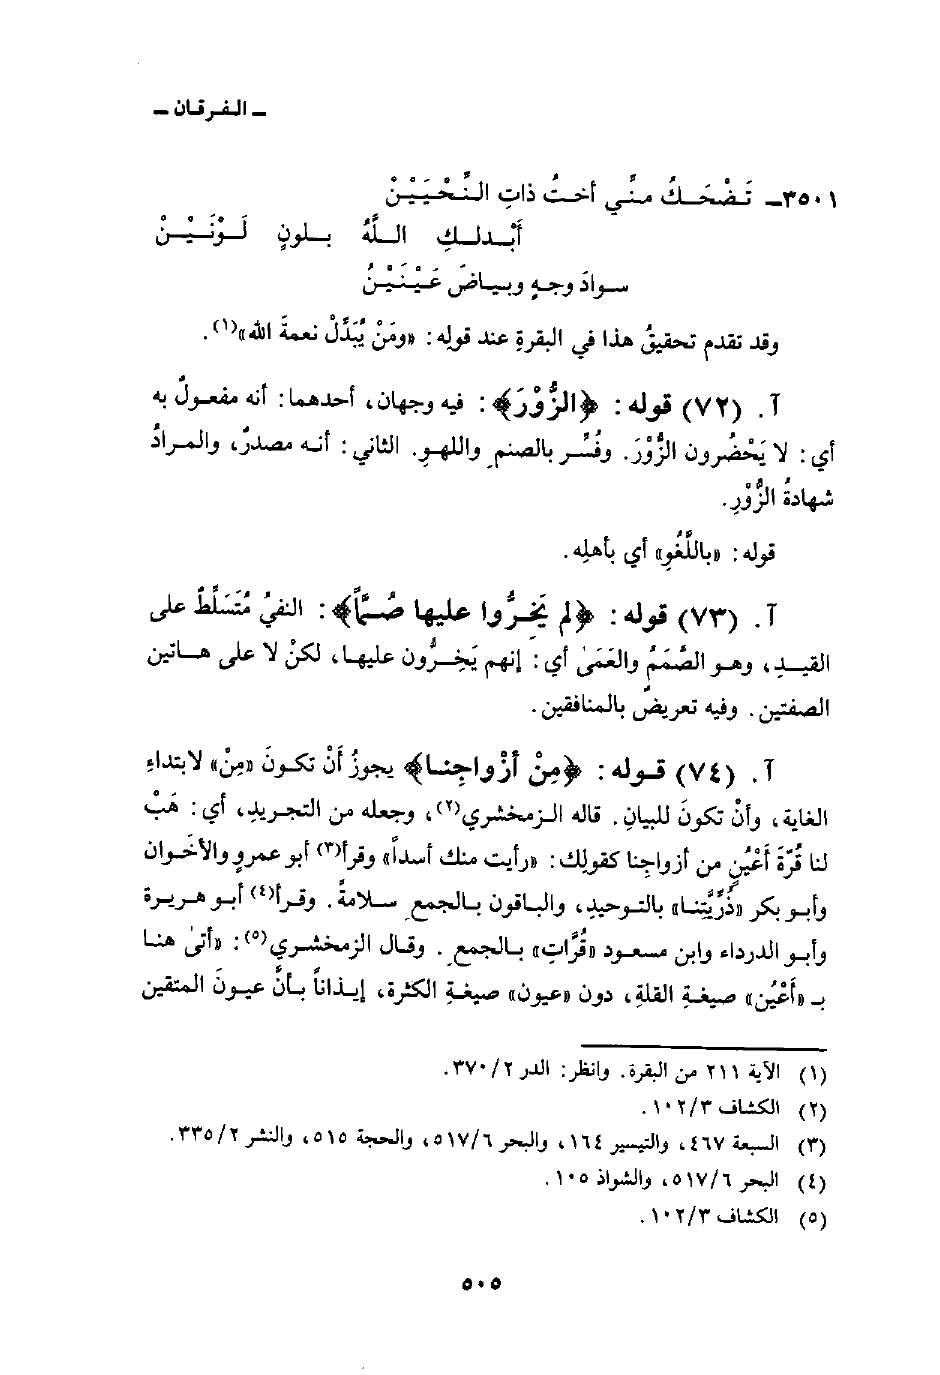 ـ الفرقان ـ
٣٥٠١ـ تَضْحَكُ منِّي أختُ ذاتِ النِّحْيَيْنْ
أَبْدلكِ اللَّهُ بلونٍ لَوْنَيْنْ
سوادَ وجهٍ وبياضَ عَيْنَيْنْ
وقد تقدم تحقيقُ هذا في البقرةِ عند قوله: «ومَنْ يُبَدِّلْ نعمةَ الله»(١).
آ. (٧٢) قوله: ﴿الزُّوْرَ﴾: فيه وجهان، أحدهما: أنه مفعولٌ به
أي: لا يَحْضُرون الزُّوْرَ. وفُسِّر بالصنم واللهوِ. الثاني: أنه مصدرٌ، والمرادُ
شهادةُ الزُّوْرِ.
قوله: «باللَّغْوِ» أي بأهلِه.
آ. (٧٣) قوله: ﴿لم يَخِرُّوا عليها صُمَّاً﴾: النفيُ مُتَسَلِّطٌ على
القيدِ، وهو الصَّمَمُ والعَمَىٰ أي: إنهم يَخِرُّون عليها، لكنْ لا على هاتين
الصفتين. وفيه تعريضٌ بالمنافقين.
آ. (٧٤) قوله: ﴿مِنْ أزْواجِنا﴾ يجوزُ أَنْ تكونَ «مِنْ» لابتداءِ
الغاية، وأنْ تكونَ للبيانِ. قاله الزمخشري(٢)، وجعله من التجريدِ، أي: هَبْ
لنا قُرَّةَ أَعْيُنٍ من أزواجِنا كقولِك: «رأيت منك أسداً» وقرأ(٣) أبو عمروٍ والأخَوان
وأبو بكر «ذُرِّيَّتنا» بالتوحيدِ، والباقون بالجمعِ سلامةً. وقرأ(٤) أبو هريرة
وأبو الدرداء وابن مسعود «قُرَّاتِ» بالجمعِ. وقال الزمخشري(٥): «أتىٰ هنا
بـ «أَعْيُن» صيغةِ القلةِ، دون «عيون» صيغةِ الكثرة، إيذاناً بأنَّ عيونَ المتقين
(١) الآية ٢١١ من البقرة. وانظر: الدر ٣٧٠/٢.
(٢) الكشاف ١٠٢/٣.
(٣) السبعة ٤٦٧، والتيسير ١٦٤، والبحر ٥١٧/٦، والحجة ٥١٥، والنشر ٣٣٥/٢.
(٤) البحر ٥١٧/٦، والشواذ ١٠٥.
(٥) الكشاف ١٠٢/٣.
٥٠٥